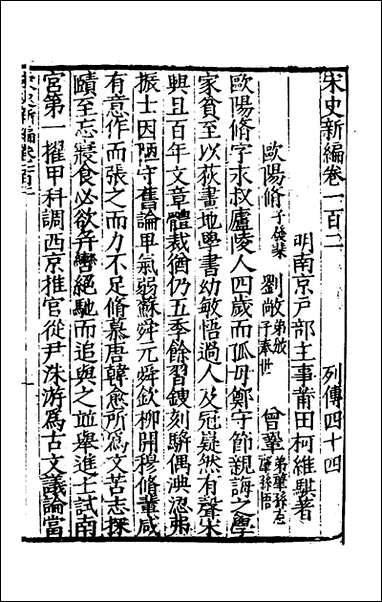 宋史新編卷一百二　列傳四十四
明南京戶部主事莆田柯維騏著
歐陽脩子發棐　劉敞弟攽子奉世　曾鞏弟肇
歐陽脩字永叔廬陵人四歲而孤母鄭守節親誨之學
家貧至以荻畫地學書幼敏悟過人及冠嶷然有聲宋
興且百年文章體裁猶仍五季餘習鎪刻駢偶淟涊弗
振士因陋守舊論卑氣弱蘇舜元舜欽柳開穆脩輩咸
有意作而張之而力不足脩慕唐韓愈所爲文苦志探
賾至忘寢食必欲并轡絕馳而追與之並舉進士試南
宮第一擢甲科調西京推官從尹洙游爲古文議論當